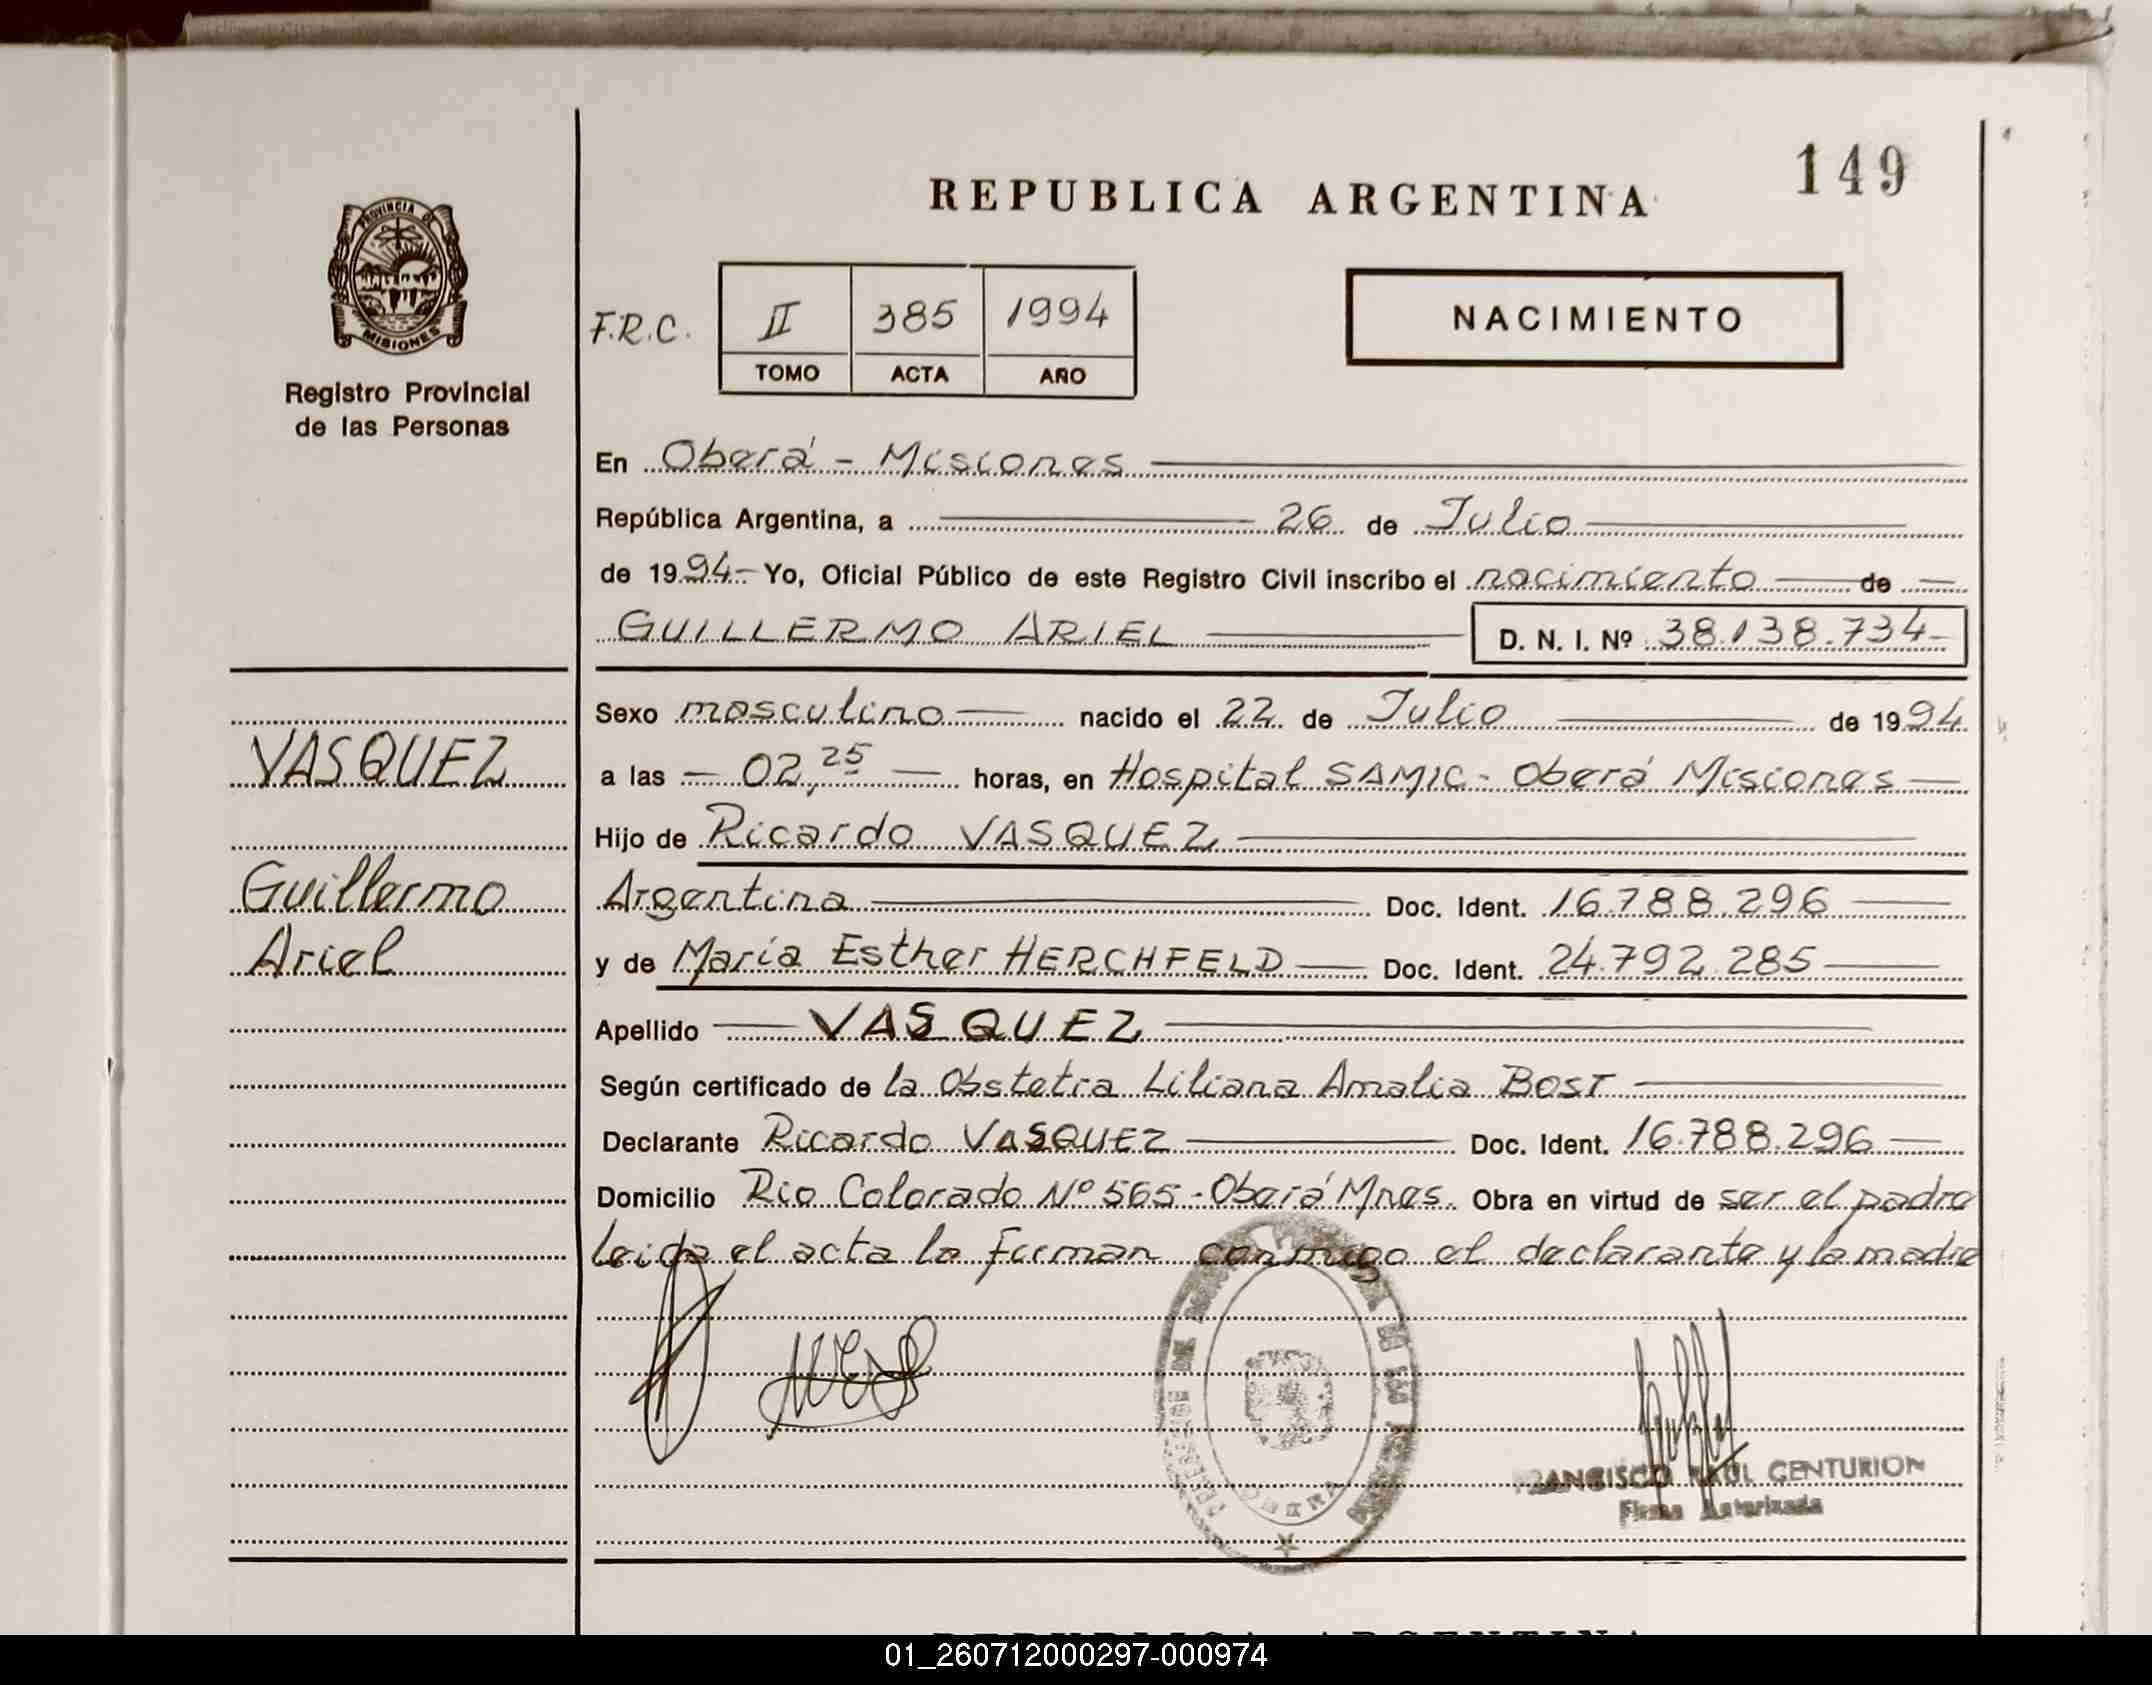 149
REPUBLICA ARGENTINA
PROVINCIA DE
MISIONES
Registro Provincial
de las Personas
F.R.C.
II 385 1994
TOMO ACTA AÑO
NACIMIENTO
En Oberá - Misiones
República Argentina, a 26 de Julio
de 1994 - Yo, Oficial Público de este Registro Civil inscribo el nacimiento de
GUILLERMO ARIEL D. N. I. Nº 38.138.734-
Sexo masculino nacido el 22 de Julio de 1994
VASQUEZ
a las - 02,25 - horas, en Hospital SAMIC - Oberá Misiones
Hijo de Ricardo VASQUEZ
Guillermo
Ariel
Argentina Doc. Ident. 16.788.296
y de María Esther HERCHFELD Doc. Ident. 24.792.285
Apellido VASQUEZ
Según certificado de la Obstetra Liliana Amalia BOST
Declarante Ricardo VASQUEZ Doc. Ident. 16.788.296
Domicilio Rio Colorado Nº 565 - Oberá Mnes. Obra en virtud de ser el padre
leida el acta la firman conmigo el declarante y la madre
OBERA
FRANCISCO RAUL CENTURION
Firma Autorizada
REPUBLICA ARGENTINA
01_260712000297-000974